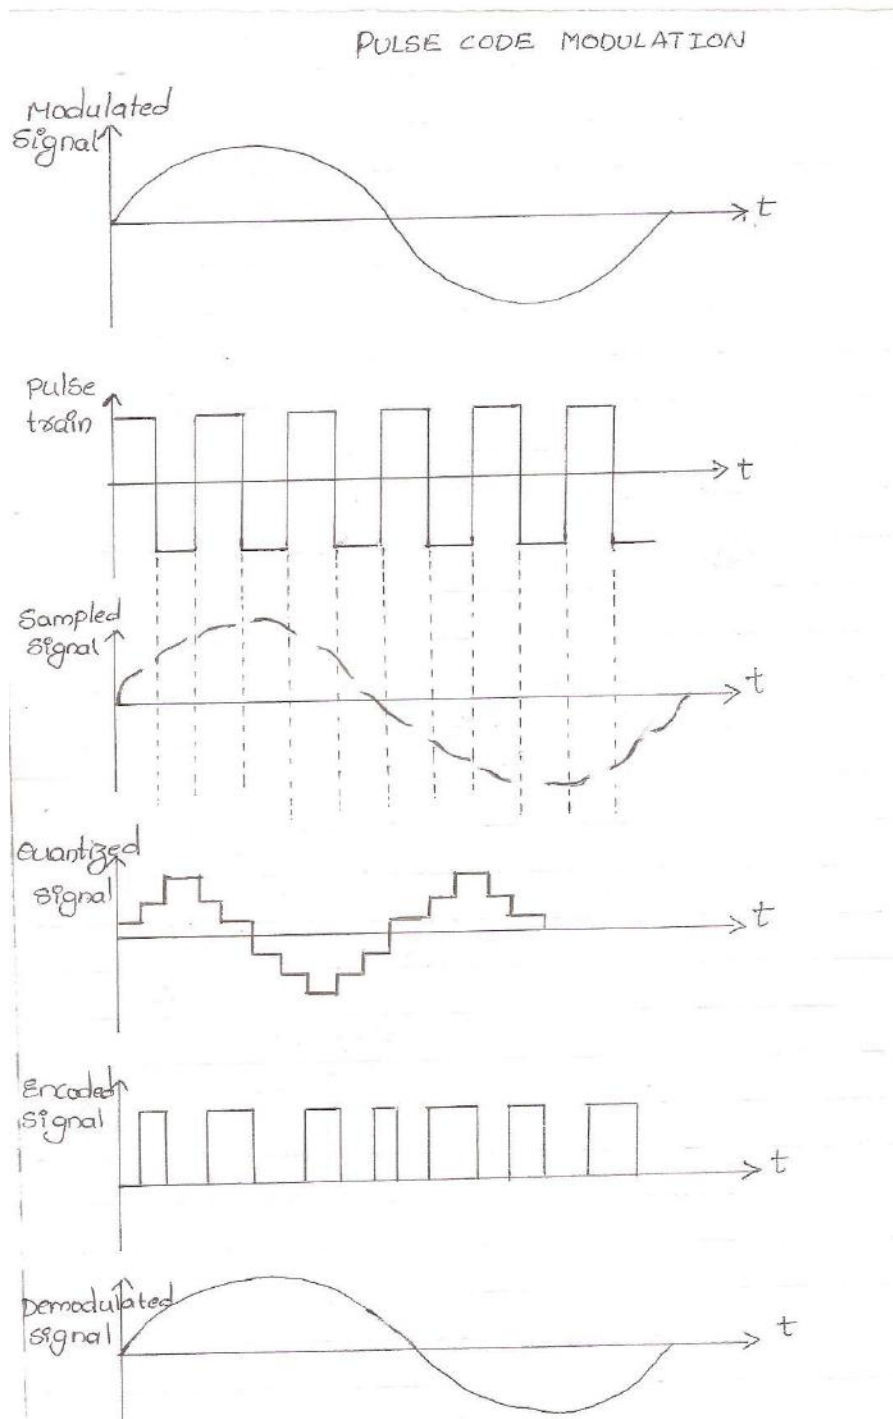 PULSE CODE MODULATION
Modulated
Signal
t
Pulse
train
t
Sampled
Signal
t
Quantized
Signal
t
Encoded
Signal
t
Demodulated
Signal
t